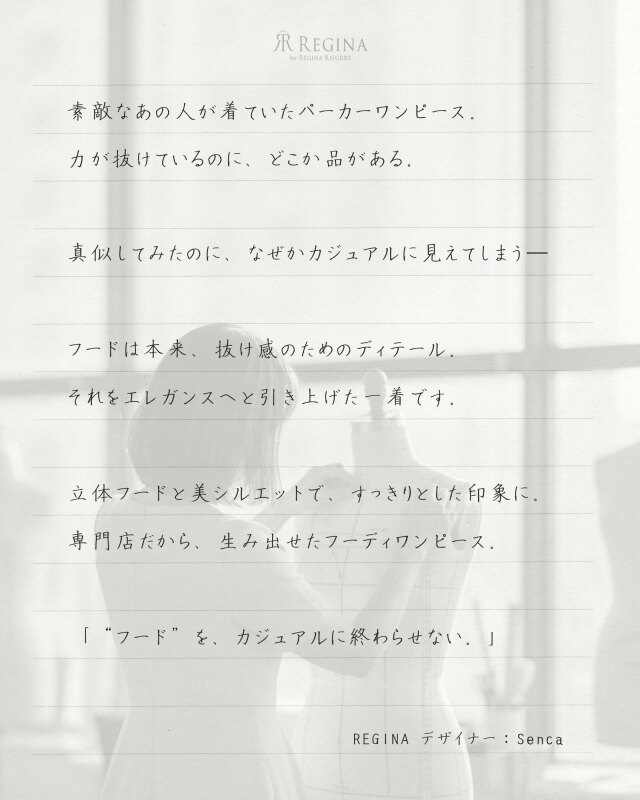 REGINA
by REGINA RISURRE
素敵なあの人が着ていたパーカーワンピース．
力が抜けているのに、どこか品がある．
真似してみたのに、なぜかカジュアルに見えてしまう━
フードは本来、抜け感のためのディテール．
それをエレガンスへと引き上げた一着です．
立体フードと美シルエットで、すっきりとした印象に．
専門店だから、生み出せたフーディワンピース．
「“フード”を、カジュアルに終わらせない．」
REGINA デザイナー：Senca